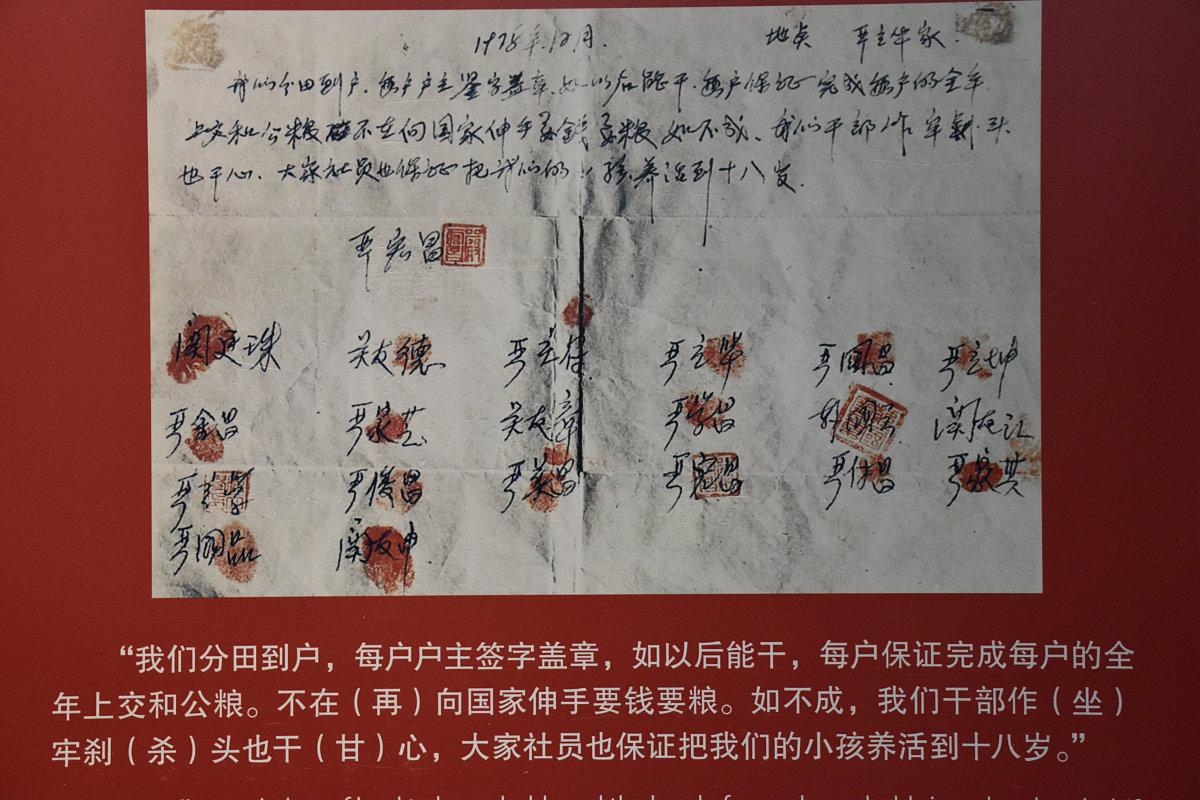 1978年12月. 地点 严立华家.
我们分田到户.每户户主签字盖章.如以后能干.每户保证完成每户的全年
上交和公粮不在向国家伸手要钱要粮如不成.我们干部作牢刹头
也干心.大家社员也保证把我们的小孩养活到十八岁.
严宏昌
关廷珠 关友德 严立符 严立华 严国昌 严立坤
严金昌 严家芝 关友章 严学昌 韩国云 关友江
严立学 严俊昌 严美昌 严宏昌 严付昌 严家其
严国品 关友申
“我们分田到户，每户户主签字盖章，如以后能干，每户保证完成每户的全
年上交和公粮。不在（再）向国家伸手要钱要粮。如不成，我们干部作（坐）
牢刹（杀）头也干（甘）心，大家社员也保证把我们的小孩养活到十八岁。”